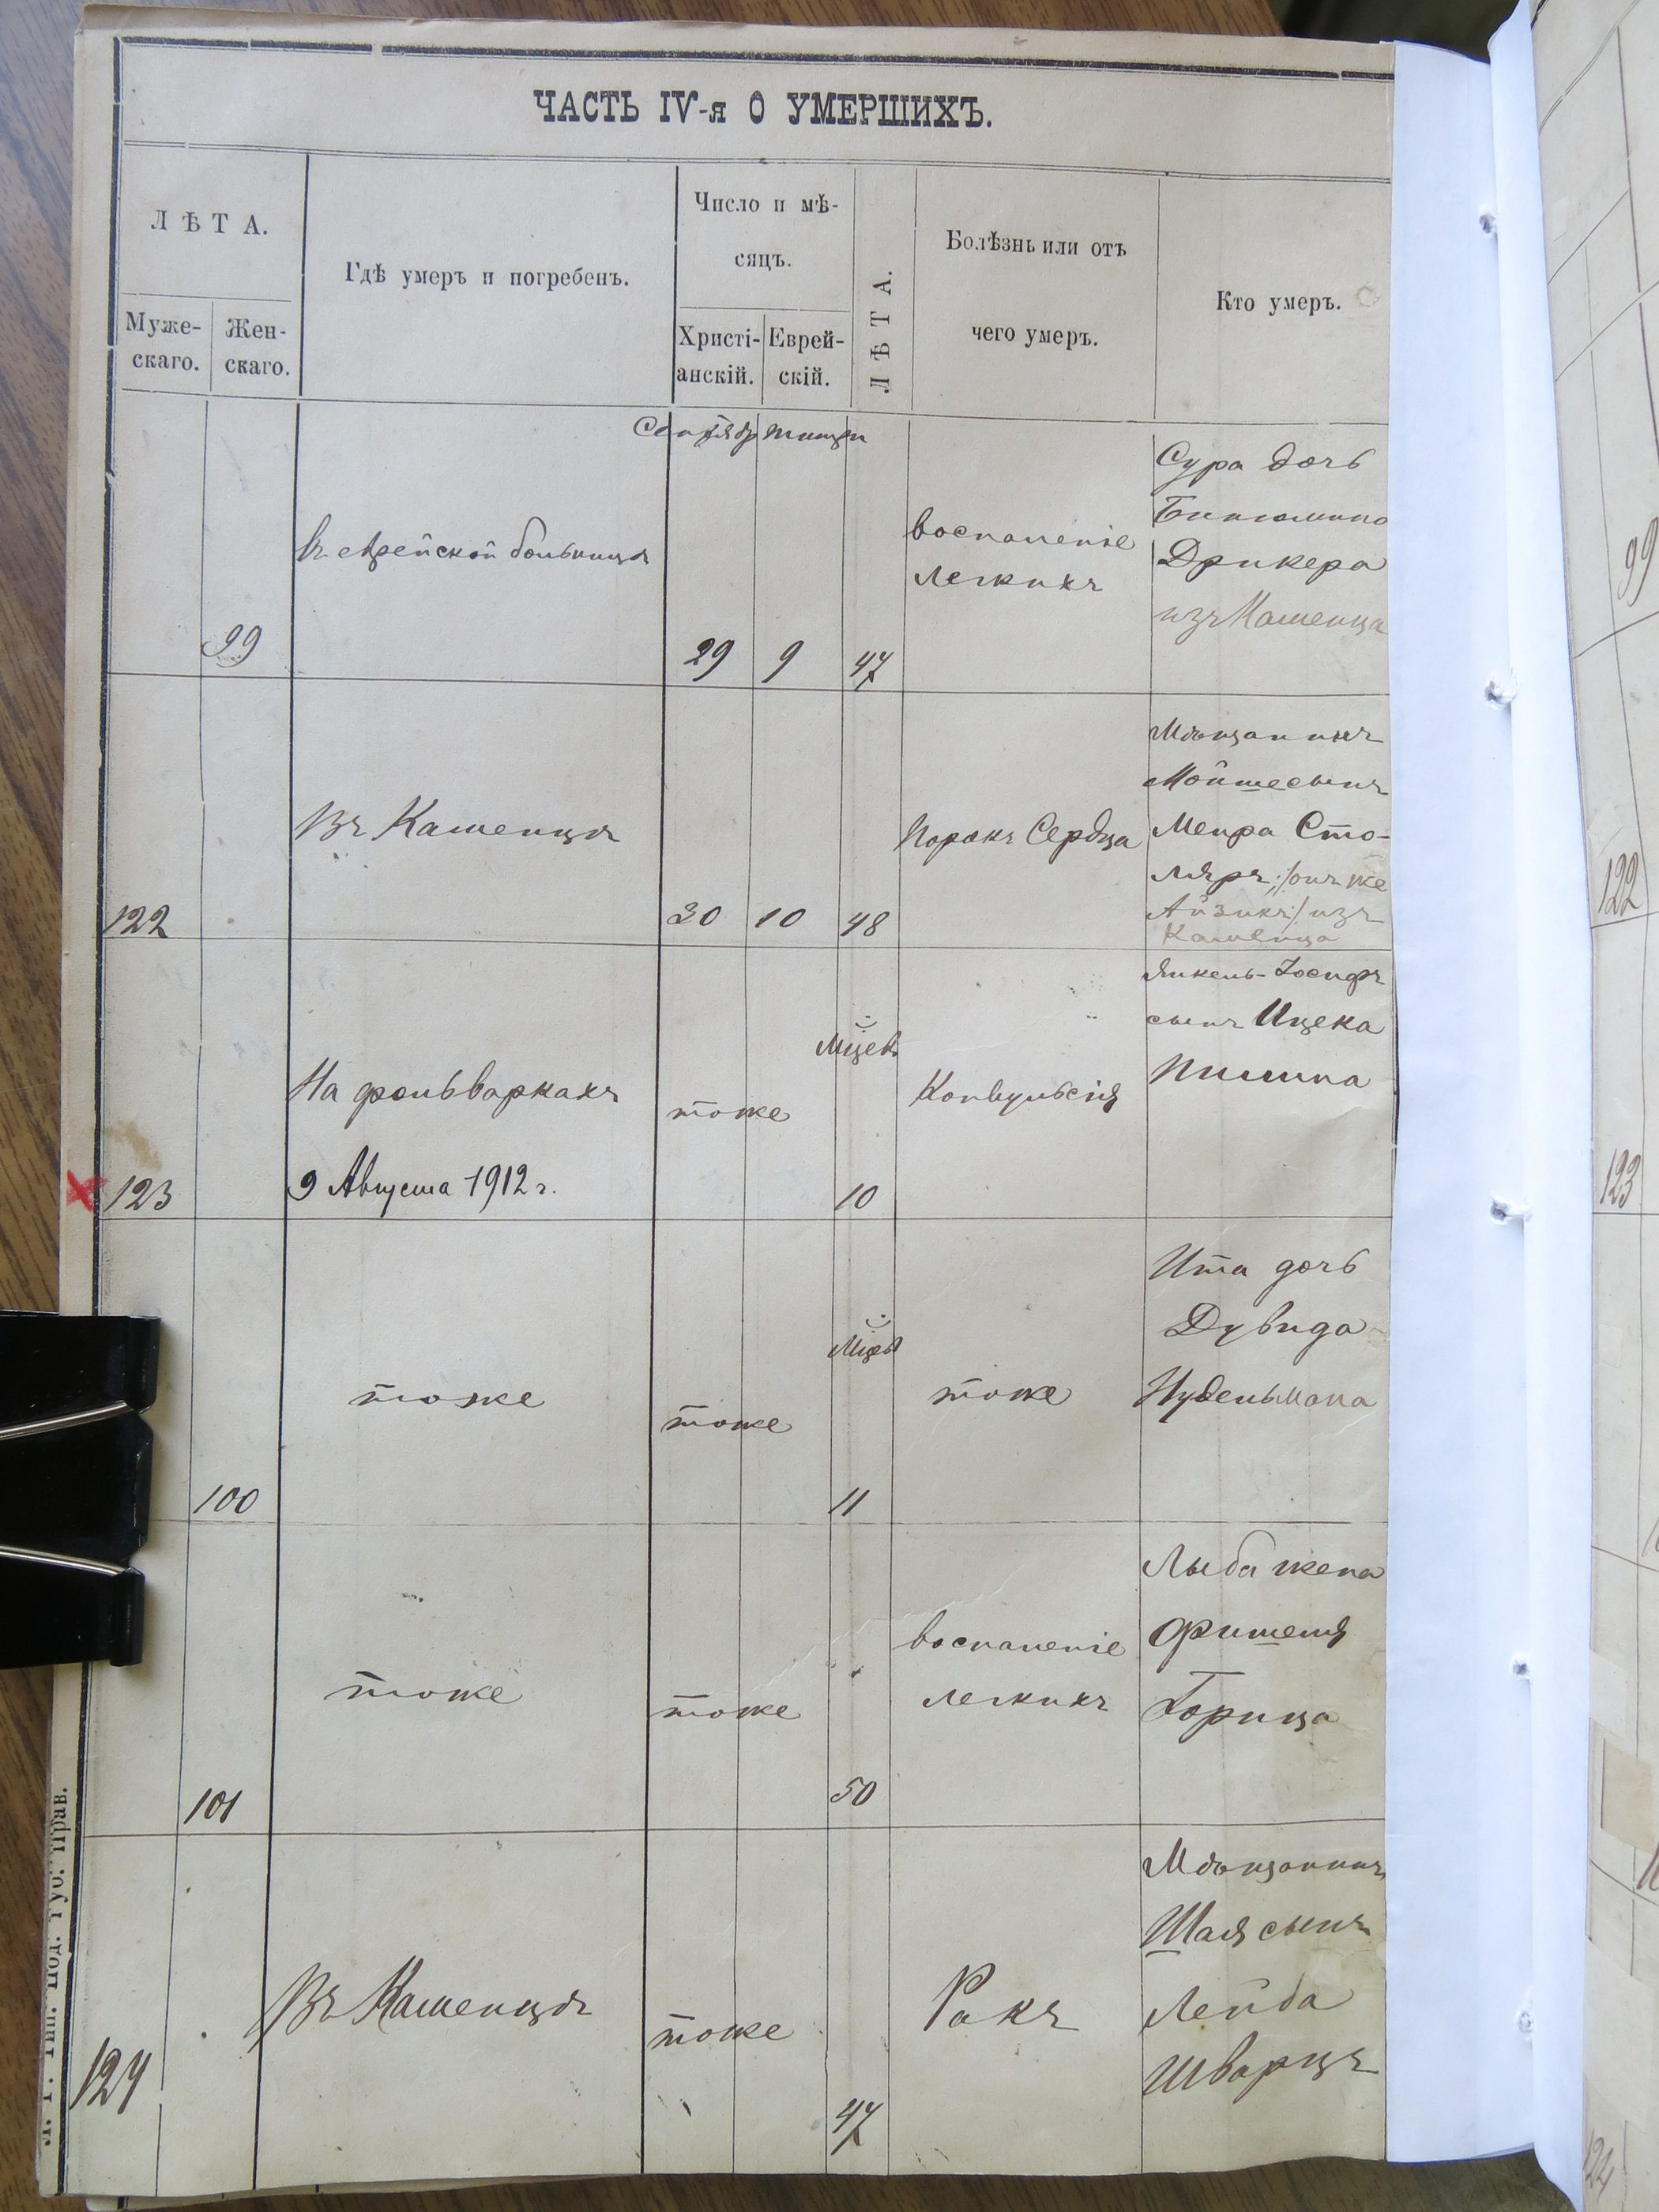 ЧАСТЬ IV-я О УМЕРШИХЪ.
ЛѢТА.
Муже-
скаго.
Жен-
скаго.
Гдѣ умеръ и погребенъ.
Число и мѣ-
сяцъ.
Христі-
анскій.
Еврей-
скій.
ЛѢТА.
Болѣзнь или отъ
чего умеръ.
Кто умеръ.
Сентябр тишри
99
въ еврейской больницѣ
29
9
47
воспаленіе
легкихъ
Сура дочь
Биньомина
Дрикера
изъ Каменца
122
Въ Каменцѣ
30
10
48
Порокъ Сердца
Мѣщанинъ
Мойше сынъ
Меира Сто-
ляръ /онъ же
Айзикъ/ изъ
Каменца
123
На фольваркахъ
9 Августа 1912 г.
тоже
Мцев
10
Конвульсія
Янкель-Іосифъ
сынъ Ицека
100
тоже
тоже
Мцев
11
тоже
Ита дочь
Дувида
Нудельмана
101
тоже
тоже
50
воспаленіе
легкихъ
Лыба жена
Фишеля
Горица
124
Въ Каменцѣ
тоже
47
Ракъ
Мѣщанинъ
Шая сынъ
Лейба
Шварцъ
99
122
123
124